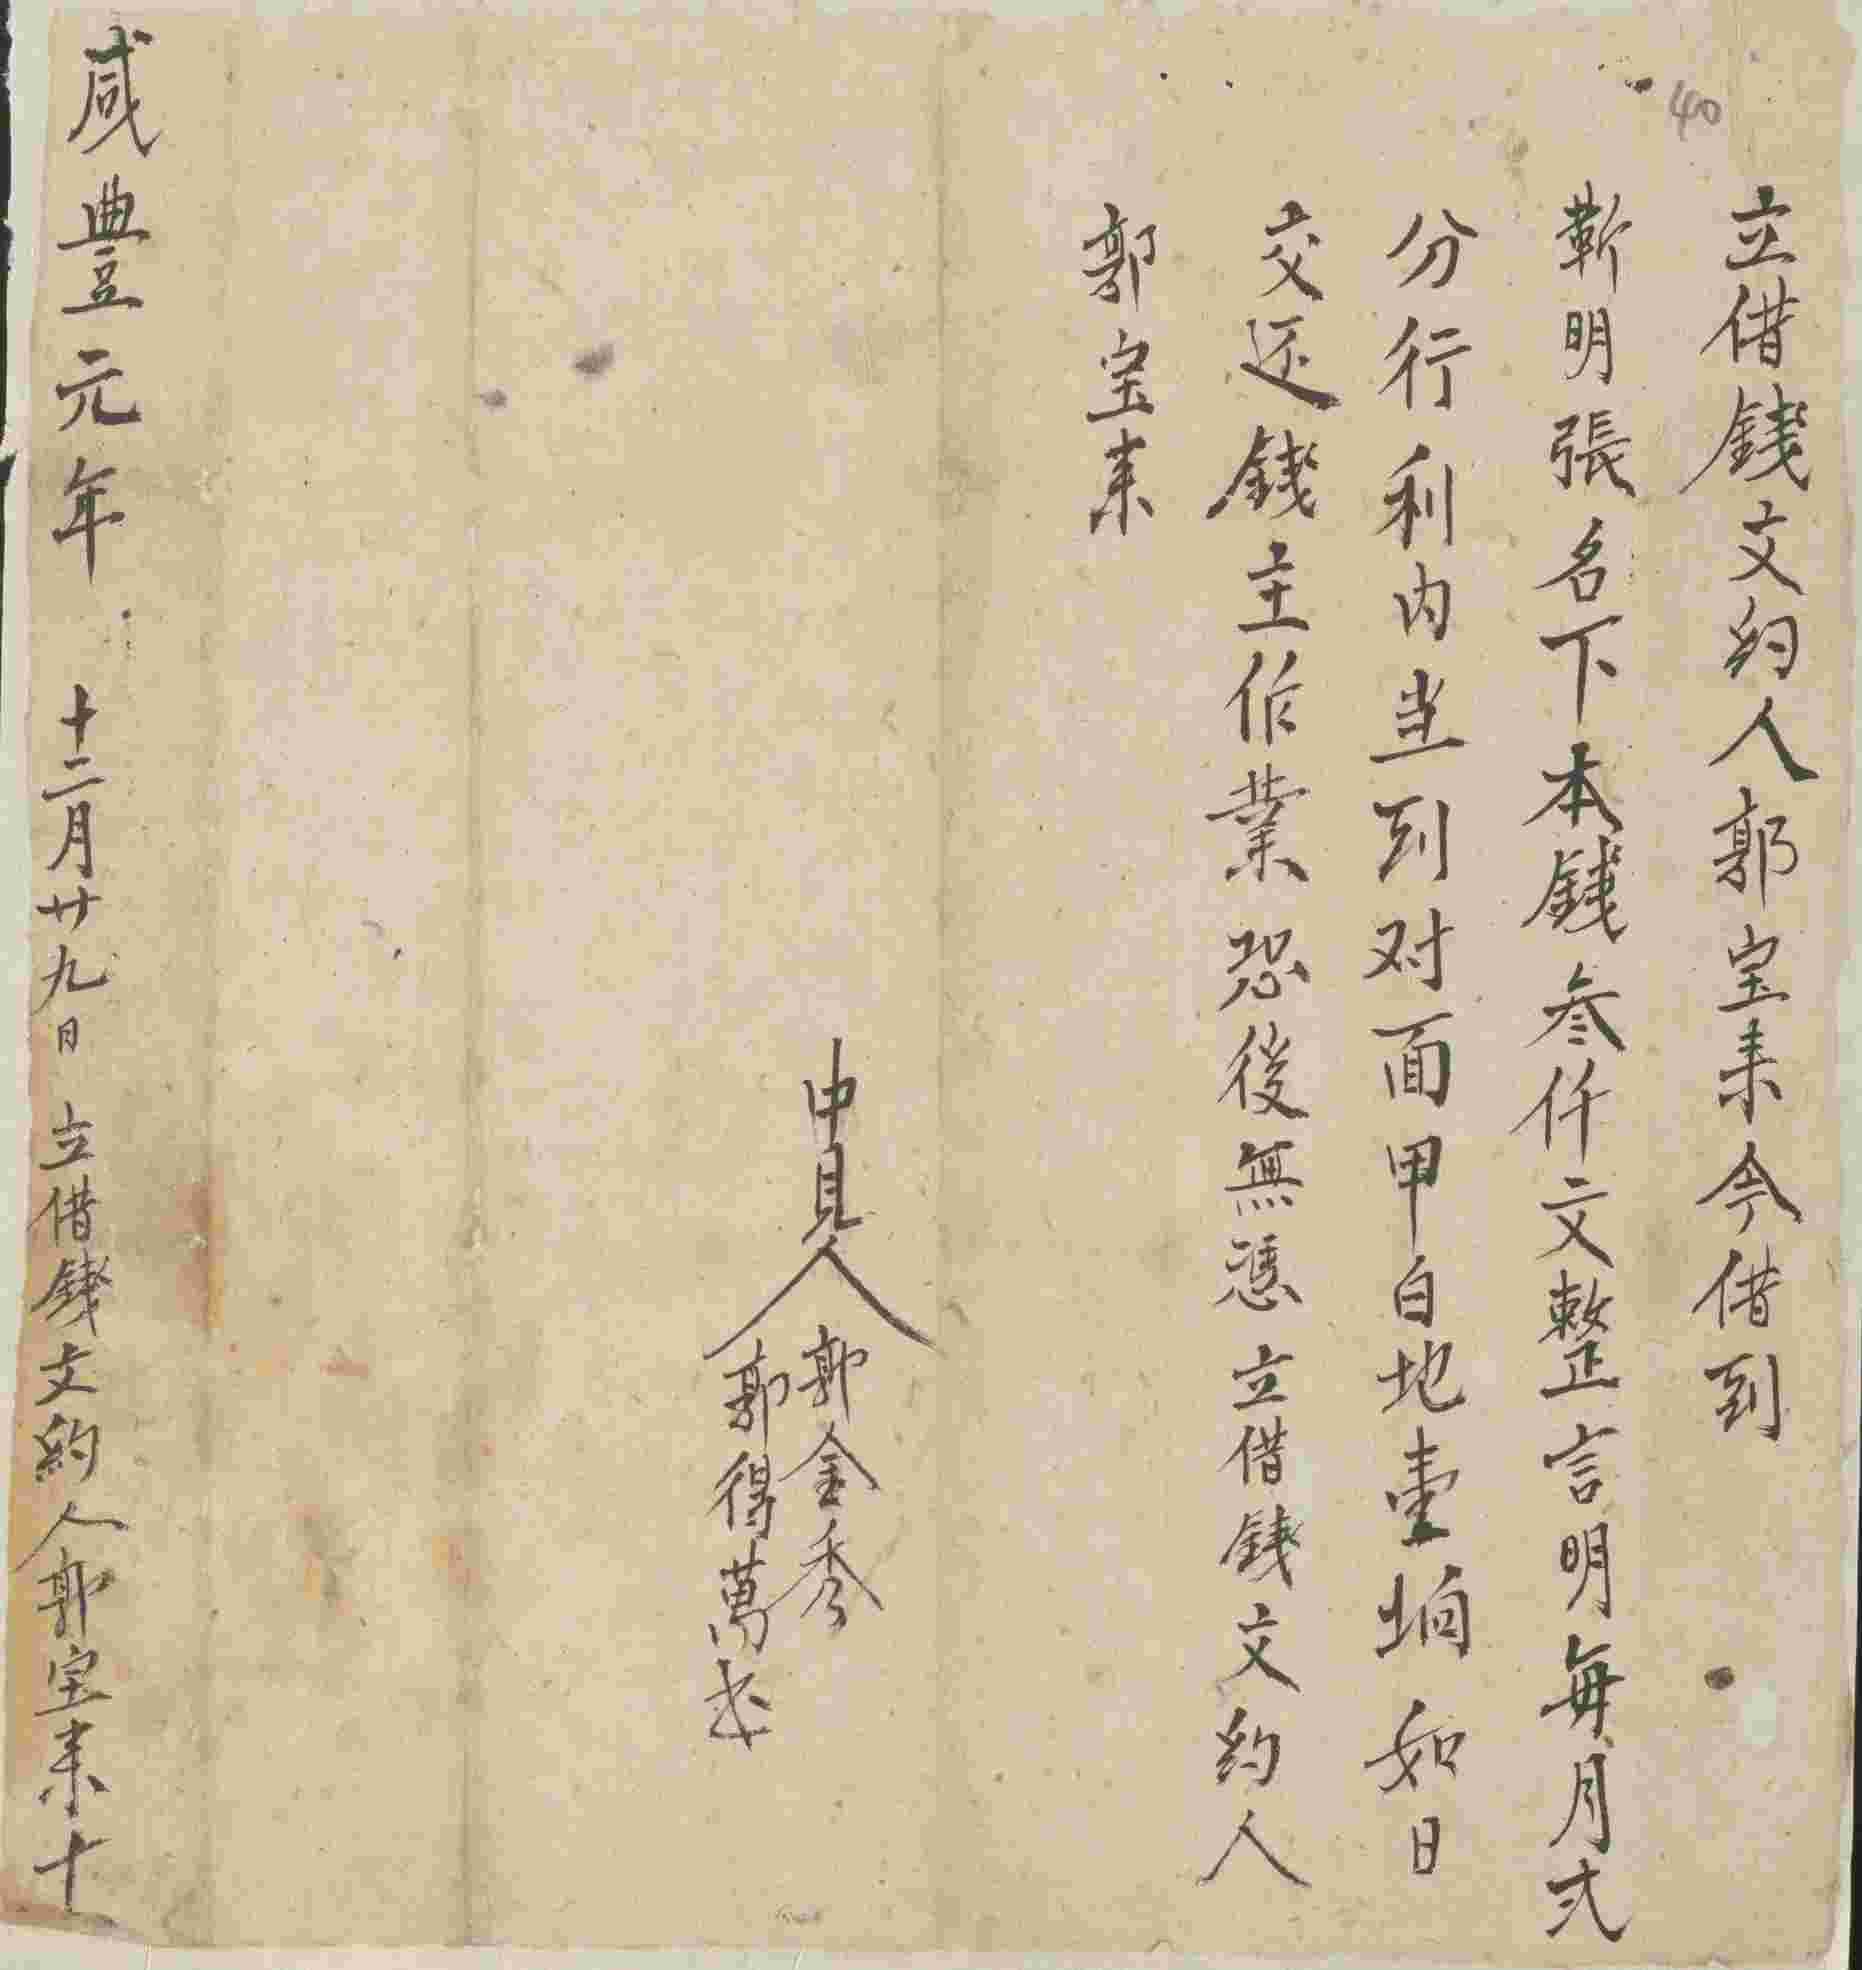 40
立借錢文約人郭宝来今借到
靳明張名下本錢叁仟文整言明每月弍
分行利内坐到对面甲白地壹垧如日
交还錢主作業恐後無憑立借錢文約人
郭宝来
中見人郭金秀
郭得萬
咸豐元年 十二月廿九日 立借錢文約人郭宝来十